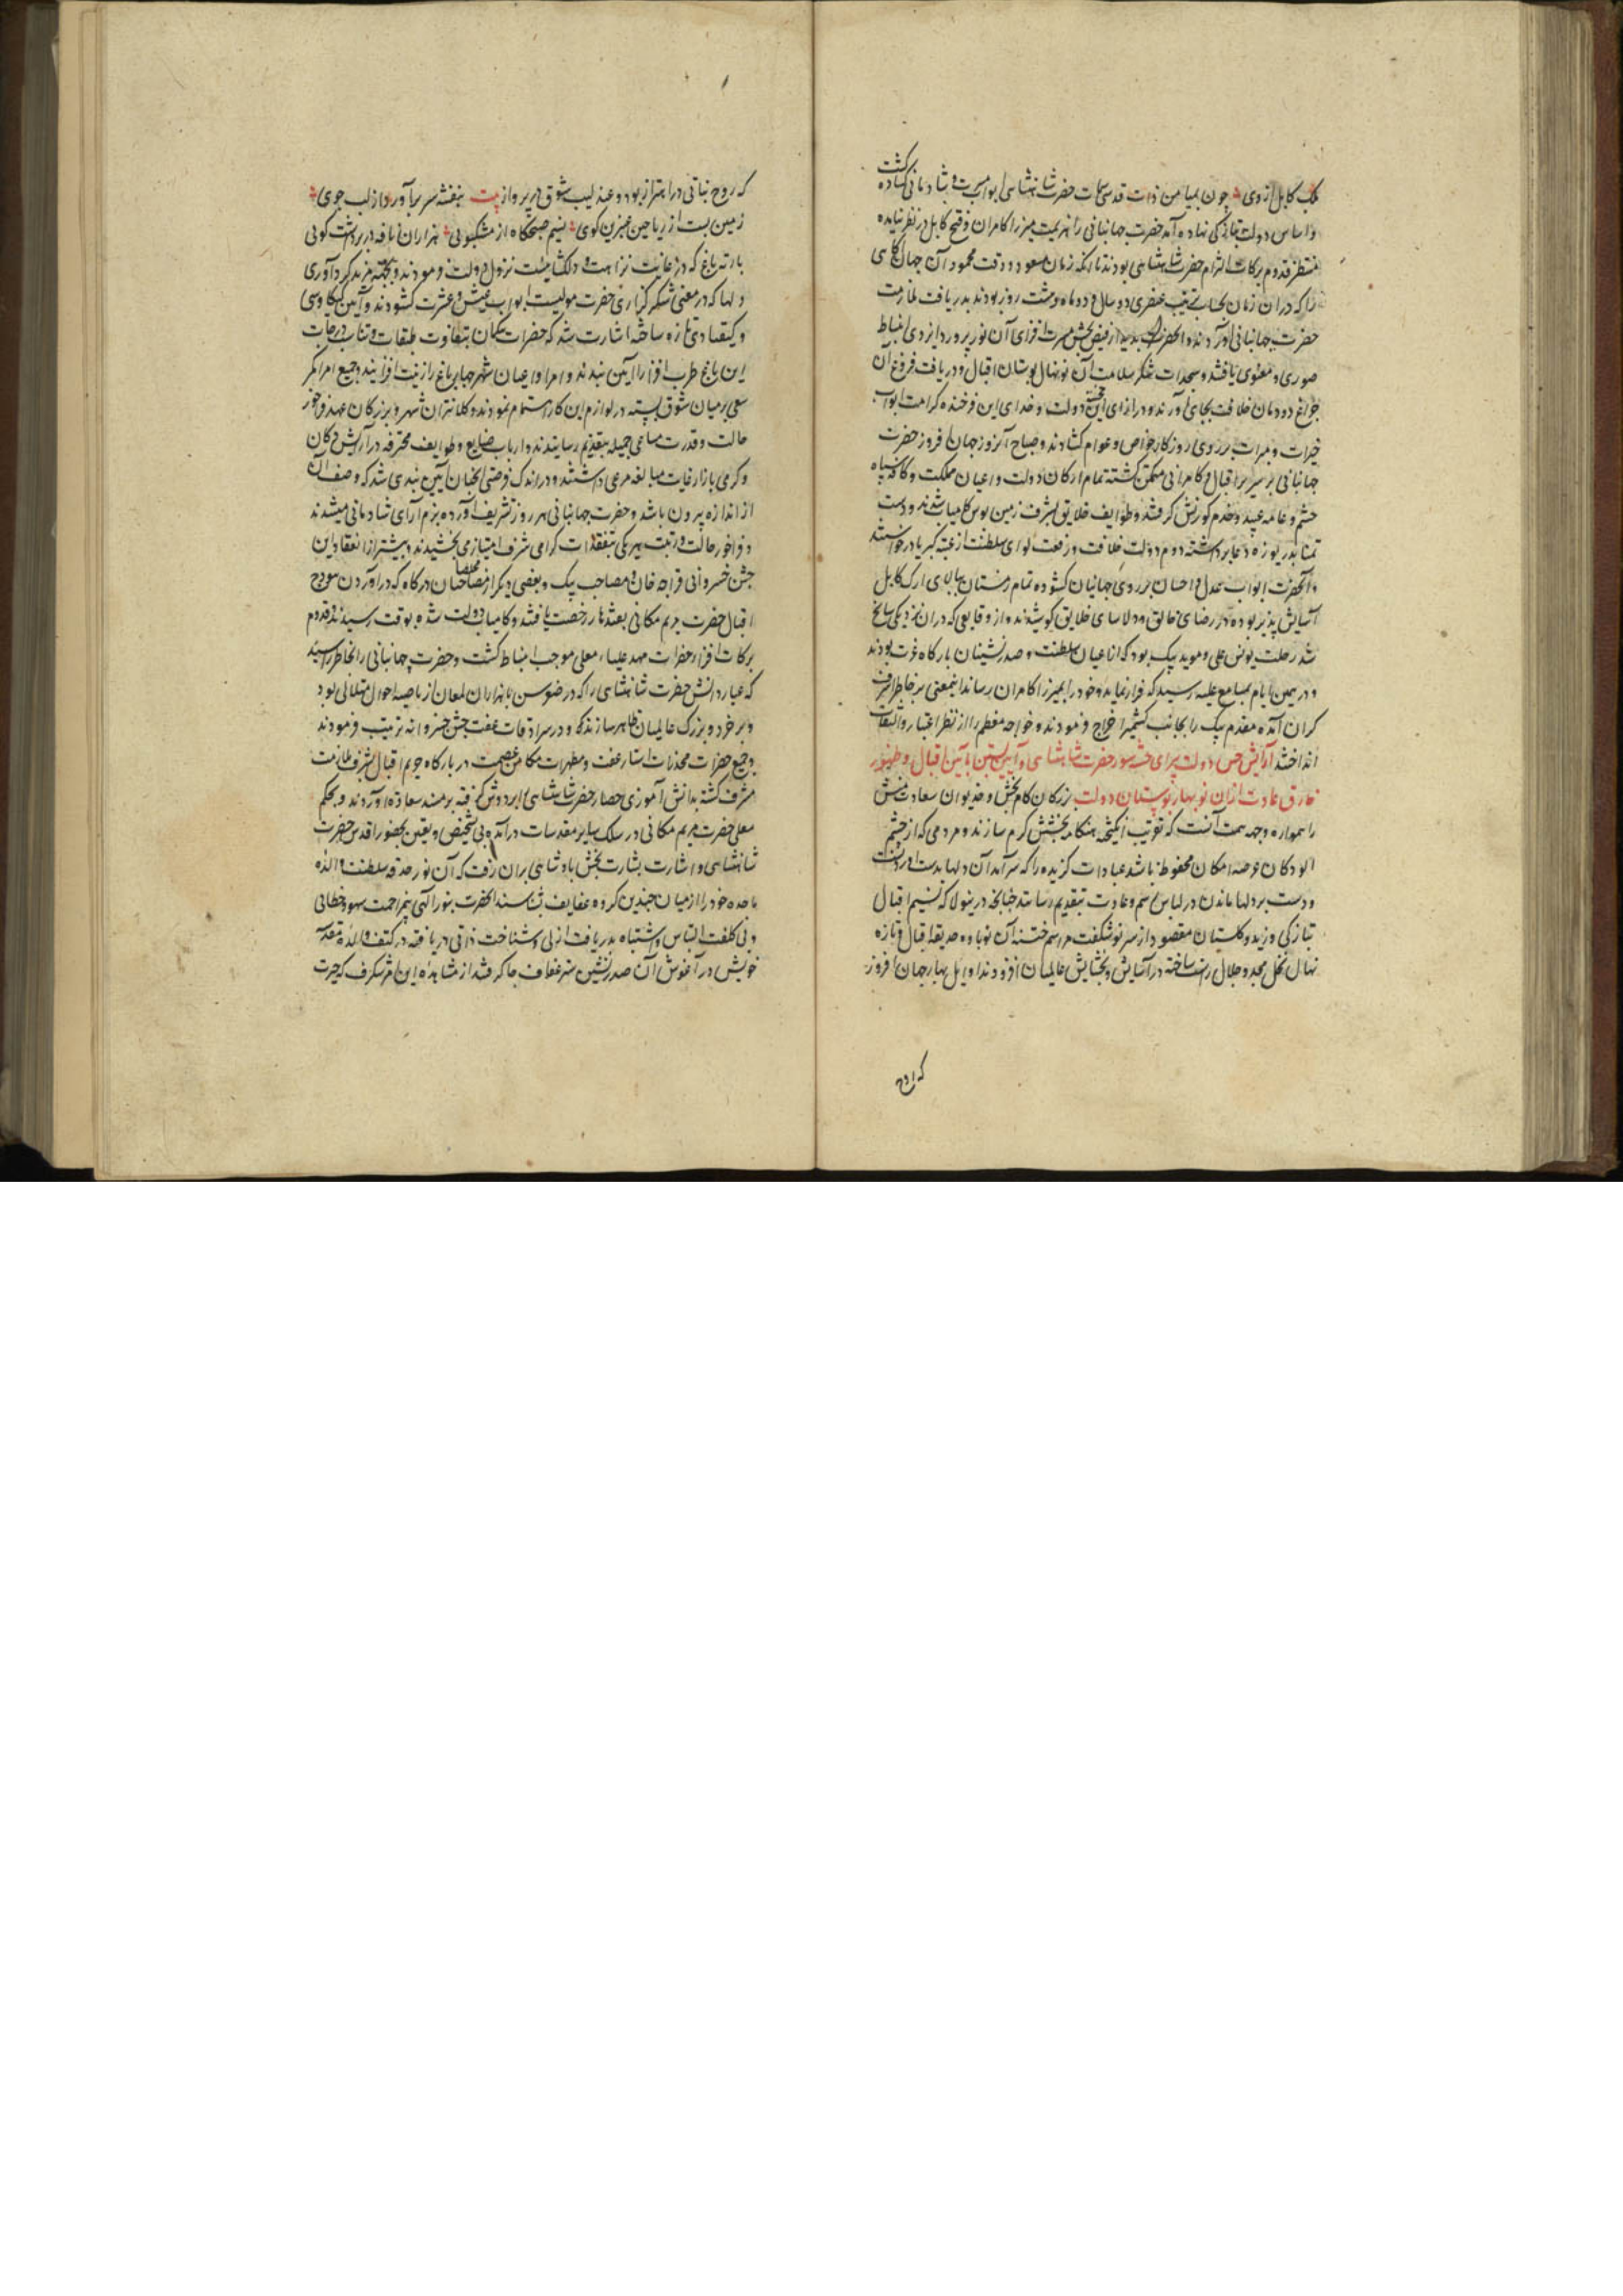 ملک کابل از وی چون بمیامن ذات قدسی سمات حضرت شاهنشاهی ابواب مسرت و شادمانی گشاده گشت
و اساس دولت یکانکی نهاده آمد حضرت جهانبانی را هزیمت میرزا کامران و فتح کابل در نظر نیامده
منتظر قدوم برکات التزام حضرت شاهنشاهی بودند تا آنکه زمان مسعود و وقت محمود آن جهان
را که در ان زمان بحساب ترتیب عنصری دو سال و دو ماه و هشت روز بودند بدریافت ملازمت
حضرت جهانبانی آوردند و آنحضرت بدیدار فیض بخش مسرت افزای آن نور پرورد ایزدی انبساط
صوری و معنوی یافتند و سجدات شکر سلامت آن نونهال بوستان اقبال و دریافت فروغ آن
چراغ دودمان خلافت بجای آوردند و در ازای این دولت و فدای این فرخنده کرامت ابواب
خیرات و مبرات بر روی روزکار خواص و عوام کشادند و صباح آنروز جهان افروز حضرت
جهانبانی بر سریر اقبال و کامرانی متمکن کشته تمام ارکان دولت و اعیان مملکت و کافه سپاه
حشم و عامه عبید و خدم کورنش کرفتند و طوایف خلایق بشرف زمین بوس کامیاب شدند و دست
تمنا بدریوزه دعا برداشته دوام دولت خلافت و رفعت لوای سلطنت از عتبه کبریا درخواستند
و آنحضرت ابواب عدل و احسان بر روی جهانیان کشوده تمام زمستان ببالای ارک کابل
آسایش پذیر بوده در رضای خالق و دلاسای خلایق کوشیدند و از وقایعی که در ان نزدیکی سانح
شد رحلت یونس علی و موید بیک بود که از اعیان سلطنت و صدرنشینان بارکاه عزت بودند
و در همین ایام بمسامع علیه رسید که فرار نماید و خود را بمیرزا کامران رساند اینمعنی بر خاطر اشرف
کران آمده مقدم بیک را بجانب کشمیر اخراج فرمودند و خواجه معظم را از نظر اعتبار و التفات
انداختند آرایش جشن دولت پیرای ختنه سور حضرت شاهنشاهی و آیین بستن بآیین اقبال و ظهور
خارق عادت ازان نوبهار بوستان دولت بزرکان کام بخش و خدیوان سعادت منش
را همواره وجهه همت آنست که تقریب انکیخته هنکامه بخشش کرم سازند و مردمی که از چشم
آلودکان عرصه امکان محفوظ باشد عبادات کزیده را که سرآمد آن دلها بدست آوردنست
و دست بر دلها ماندن در لباس رسم و عادت بتقدیم رسانند چنانچه درینولا که نسیم اقبال
بتازکی وزید و کلستان مقصود از سر نو شکفت مراسم ختنه آن نوباوه حدیقه اقبال و تازه
نهال نخل مجد و جلال راست ساخته در آسایش و بخشایش عالمیان افزودند اوایل بهار جهان افروز
که روح
که روح نباتی در اهتزاز بود و عندلیب شوق در پرواز بیت بنفشه سر برآورد از لب جوی
زمین بست از ریاحین عنبرین کوی نسیم صبحکاه از مشکبویی هزاران نافه در بر داشت کویی
بارته باغ که در غایت نزاهت و دلکشائیست نزول دولت فرمودند و بجهته مزید کردآوری
دلها که در معنی شکر کزاری حضرت مولیست ابواب عیش و عشرت کشودند و آیین کیکاوسی
و کیقبادی تازه ساخته اشارت شد که حضرات بیکمان بتفاوت طبقات و تناسب درجات
این باغ طرب افزا را آیین بندند و امرا و اعیان شهر چهار باغ را زینت افزایند و جمیع امرا کمر
سعی بر میان شوق بسته در لوازم این کار اهتمام نمودند و کلانتران شهر و بزرکان عهد فراخور
حالت و قدرت مساعی جمیله بتقدیم رسانیدند و ارباب صنایع و طوایف محترفه در آرایش دکان
و کرمی بازار غایت مبالغه مرعی داشتند و در اندک فرصتی آنچنان آیین بندی شد که وصف آن
از اندازه بیرون باشد و حضرت جهانبانی هر روز تشریف آورده بزم آرای شادمانی میشدند
و فراخور حالت و رتبت هر یکی بتفقدات کرامی شرف امتیاز می بخشیدند و پیشتر از انعقاد این
جشن خسروانی قراجه خان و مصاحب بیک و بعضی دیکر از مخلصان درکاه که در آوردن هودج
اقبال حضرت مریم مکانی بقندهار رخصت یافتند و کامیاب دولت شده بوقت رسیدند و قدوم
برکات افزای حضرات مهد علیاء معلی موجب انبساط کشت و حضرت جهانبانی را بخاطر رسید
که عیار دانش حضرت شاهنشاهی را که در صغر سن با هزاران لمعان از ناصیه احوال متلالی بود
و بر خرد و بزرک عالمیان ظاهر سازند که در سرادقات عفت جشن خسروانه ترتیب فرمودند
و جمیع حضرات مخدرات استار عفت و مطهرات مکامن عصمت در بارکاه حریم اقبال بشرف ملازمت
مشرف کشته بدانش آموزی حضار حضرت شاهنشاهی را بر دوش کرفته بر مسند سعادت آوردند و بحکم
معلی حضرت مریم مکانی در سلک سایر مقدسات درآمده بی تشخیص و یقین بحضور اقدس حضرت
شاهنشاهی و اشارت بشارت بخش پادشاهی بران رفت که آن نور حدقه سلطنت والده
ماجده خود را از میان چندین کروه عفایف بشناسند آنحضرت بنور الهی بی مزاحمت سهو و خطائی
و بی کلفت التباس و اشتباه بدریافت ازلی و شناخت ذاتی دریافته در کنف والده مقدسه
خویش در آغوش آن صدرنشین ستر عفاف جا کرفتند از مشاهده این امر شکرف که حیرت